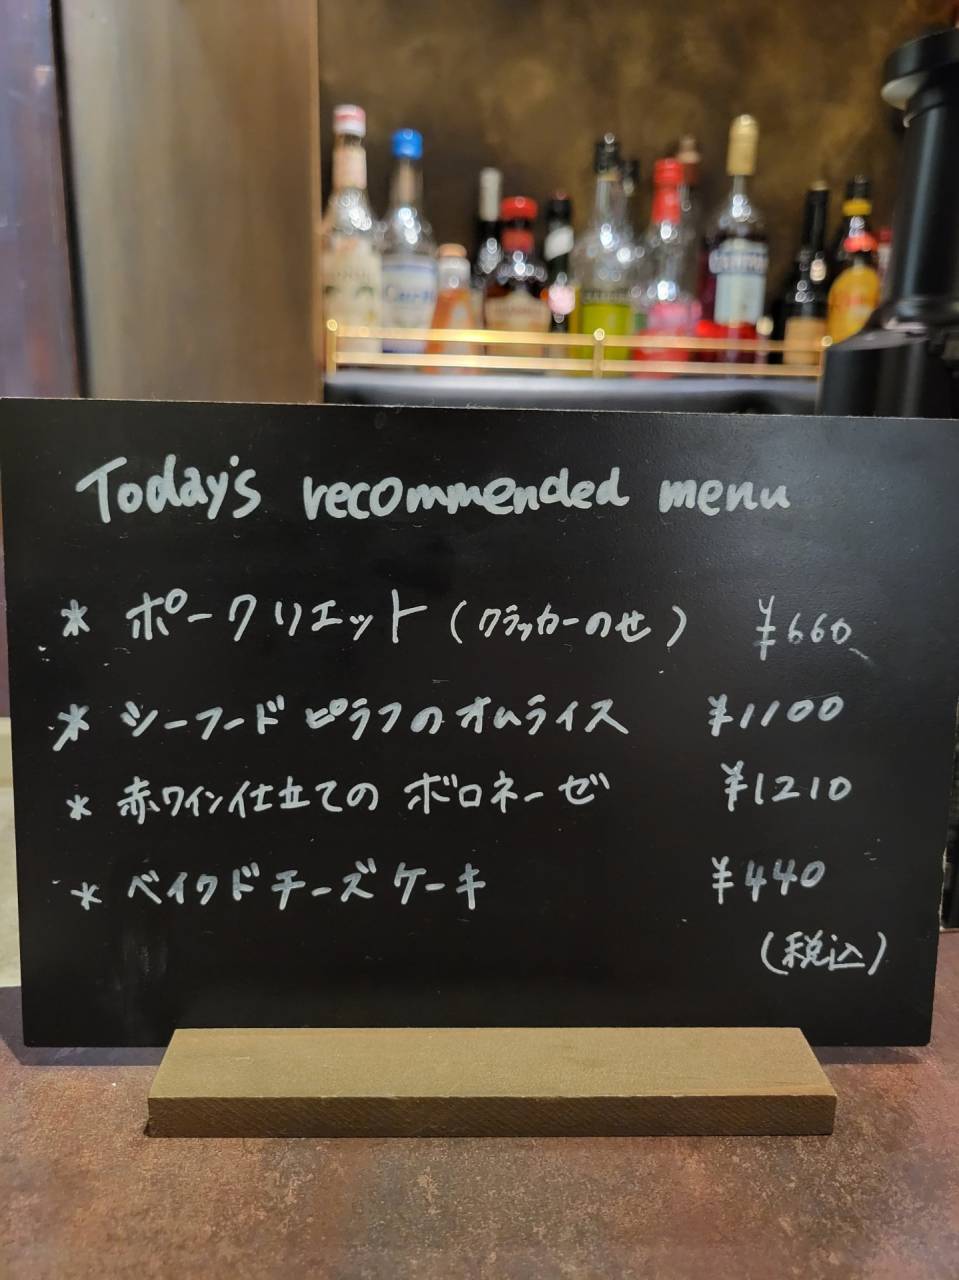 Today's recommended menu
* ポークリエット (クラッカーのせ) ¥660
* シーフードピラフのオムライス ¥1100
* 赤ワイン仕立ての ボロネーゼ ¥1210
* ベイクドチーズケーキ ¥440
(税込)